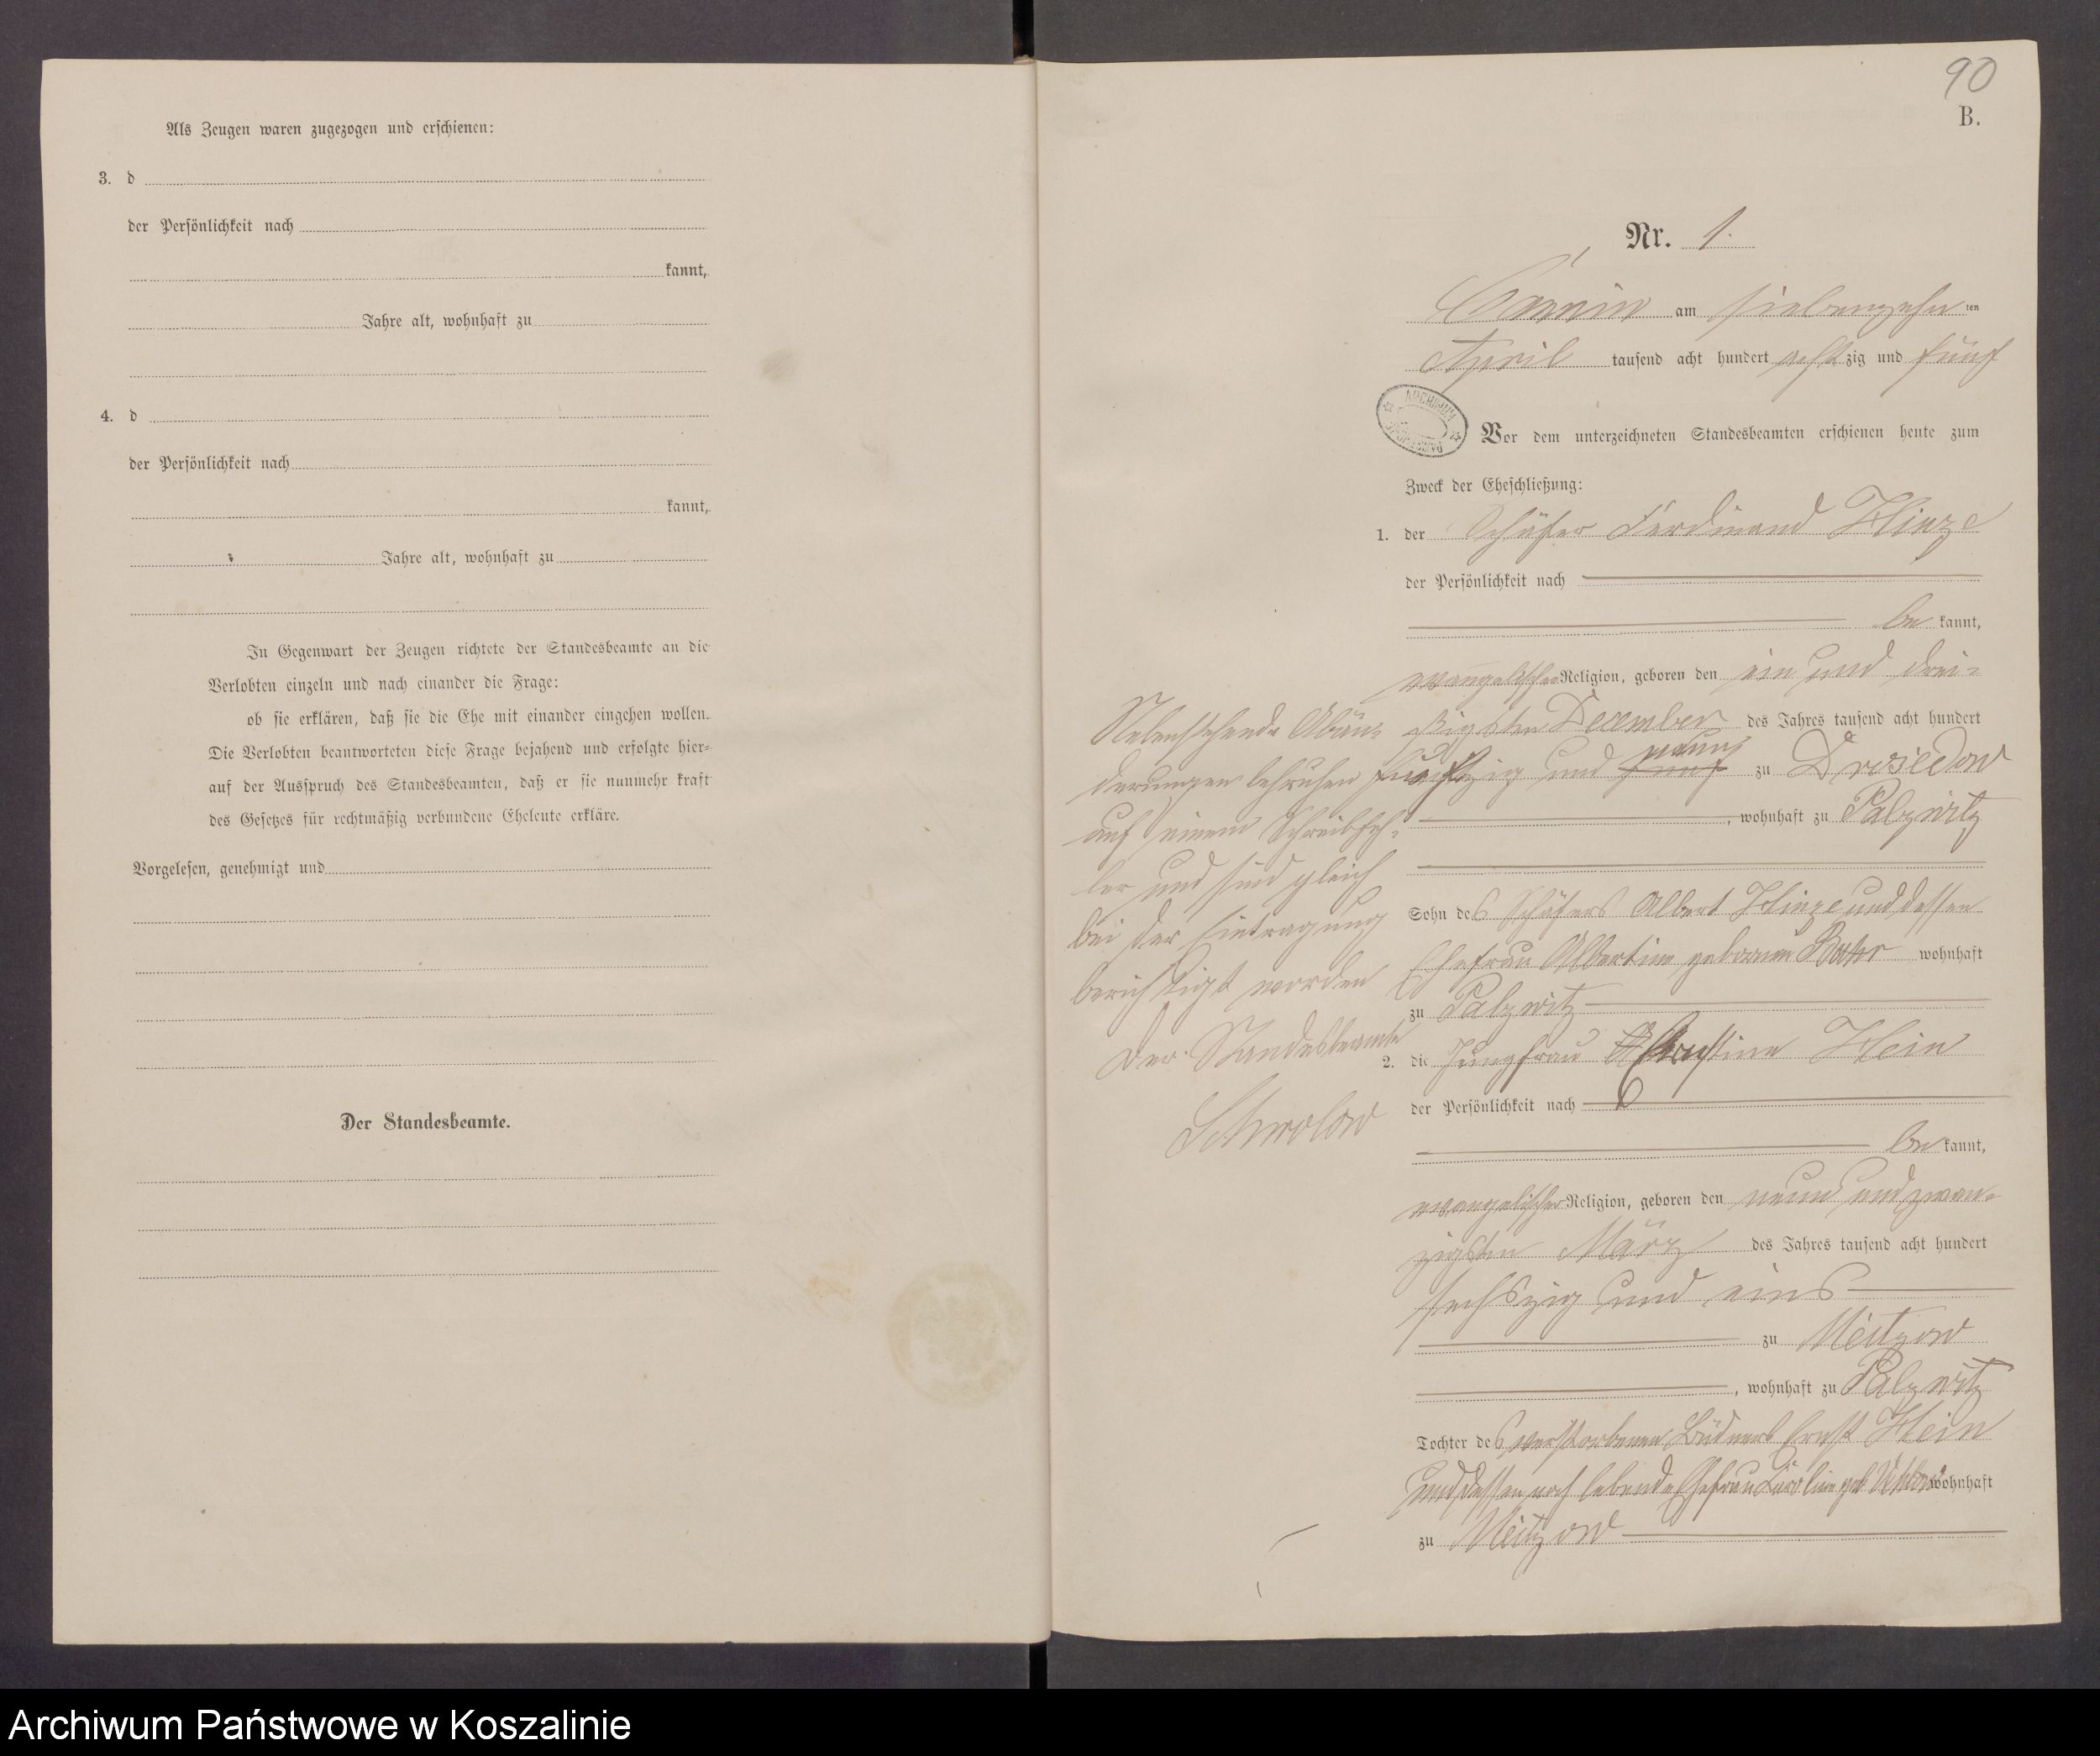 Als Zeugen waren zugezogen und erschienen:
3. d
der Persönlichkeit nach
kannt,
Jahre alt, wohnhaft zu
4. d
der Persönlichkeit nach
kannt,
Jahre alt, wohnhaft zu
In Gegenwart der Zeugen richtete der Standesbeamte an die
Verlobten einzeln und nach einander die Frage:
ob sie erklären, daß sie die Ehe mit einander eingehen wollen.
Die Verlobten beantworteten diese Frage bejahend und erfolgte hier-
auf der Ausspruch des Standesbeamten, daß er sie nunmehr kraft
des Gesetzes für rechtmäßig verbundene Eheleute erkläre.
Vorgelesen, genehmigt und
Der Standesbeamte.
90
B.
Nr. 1.
am siebenzehn ten
April tausend acht hundert achtzig und fünf
Vor dem unterzeichneten Standesbeamten erschienen heute zum
Zweck der Eheschließung:
1. der Schäfer Ferdinand Hinze
der Persönlichkeit nach
be kannt,
evangelischer Religion, geboren den ein und drei-
ßigsten December des Jahres tausend acht hundert
fünfzig und neun zu Dresedow
, wohnhaft zu Palzwitz
Sohn des Schäfers Albert Hinze und dessen
Ehefrau Albertine geborene wohnhaft
zu Palzwitz
2. die Jungfrau Ernstine Hein
der Persönlichkeit nach
be kannt,
evangelischer Religion, geboren den neun und zwan-
zigsten März des Jahres tausend acht hundert
sechszig und eins
zu Meitzow
, wohnhaft zu Palzwitz
Tochter des verstorbenen Büdners Ernst Hein
und dessen noch lebende Ehefrau Karoline geb wohnhaft
zu Meitzow
Nebenstehende Abän-
derungen beruhen
auf einem Schreibfeh-
ler und sind gleich
bei der Eintragung
berichtigt worden
Der Standesbeamte
Schwolow
ARCHIWUM
Archiwum Państwowe w Koszalinie